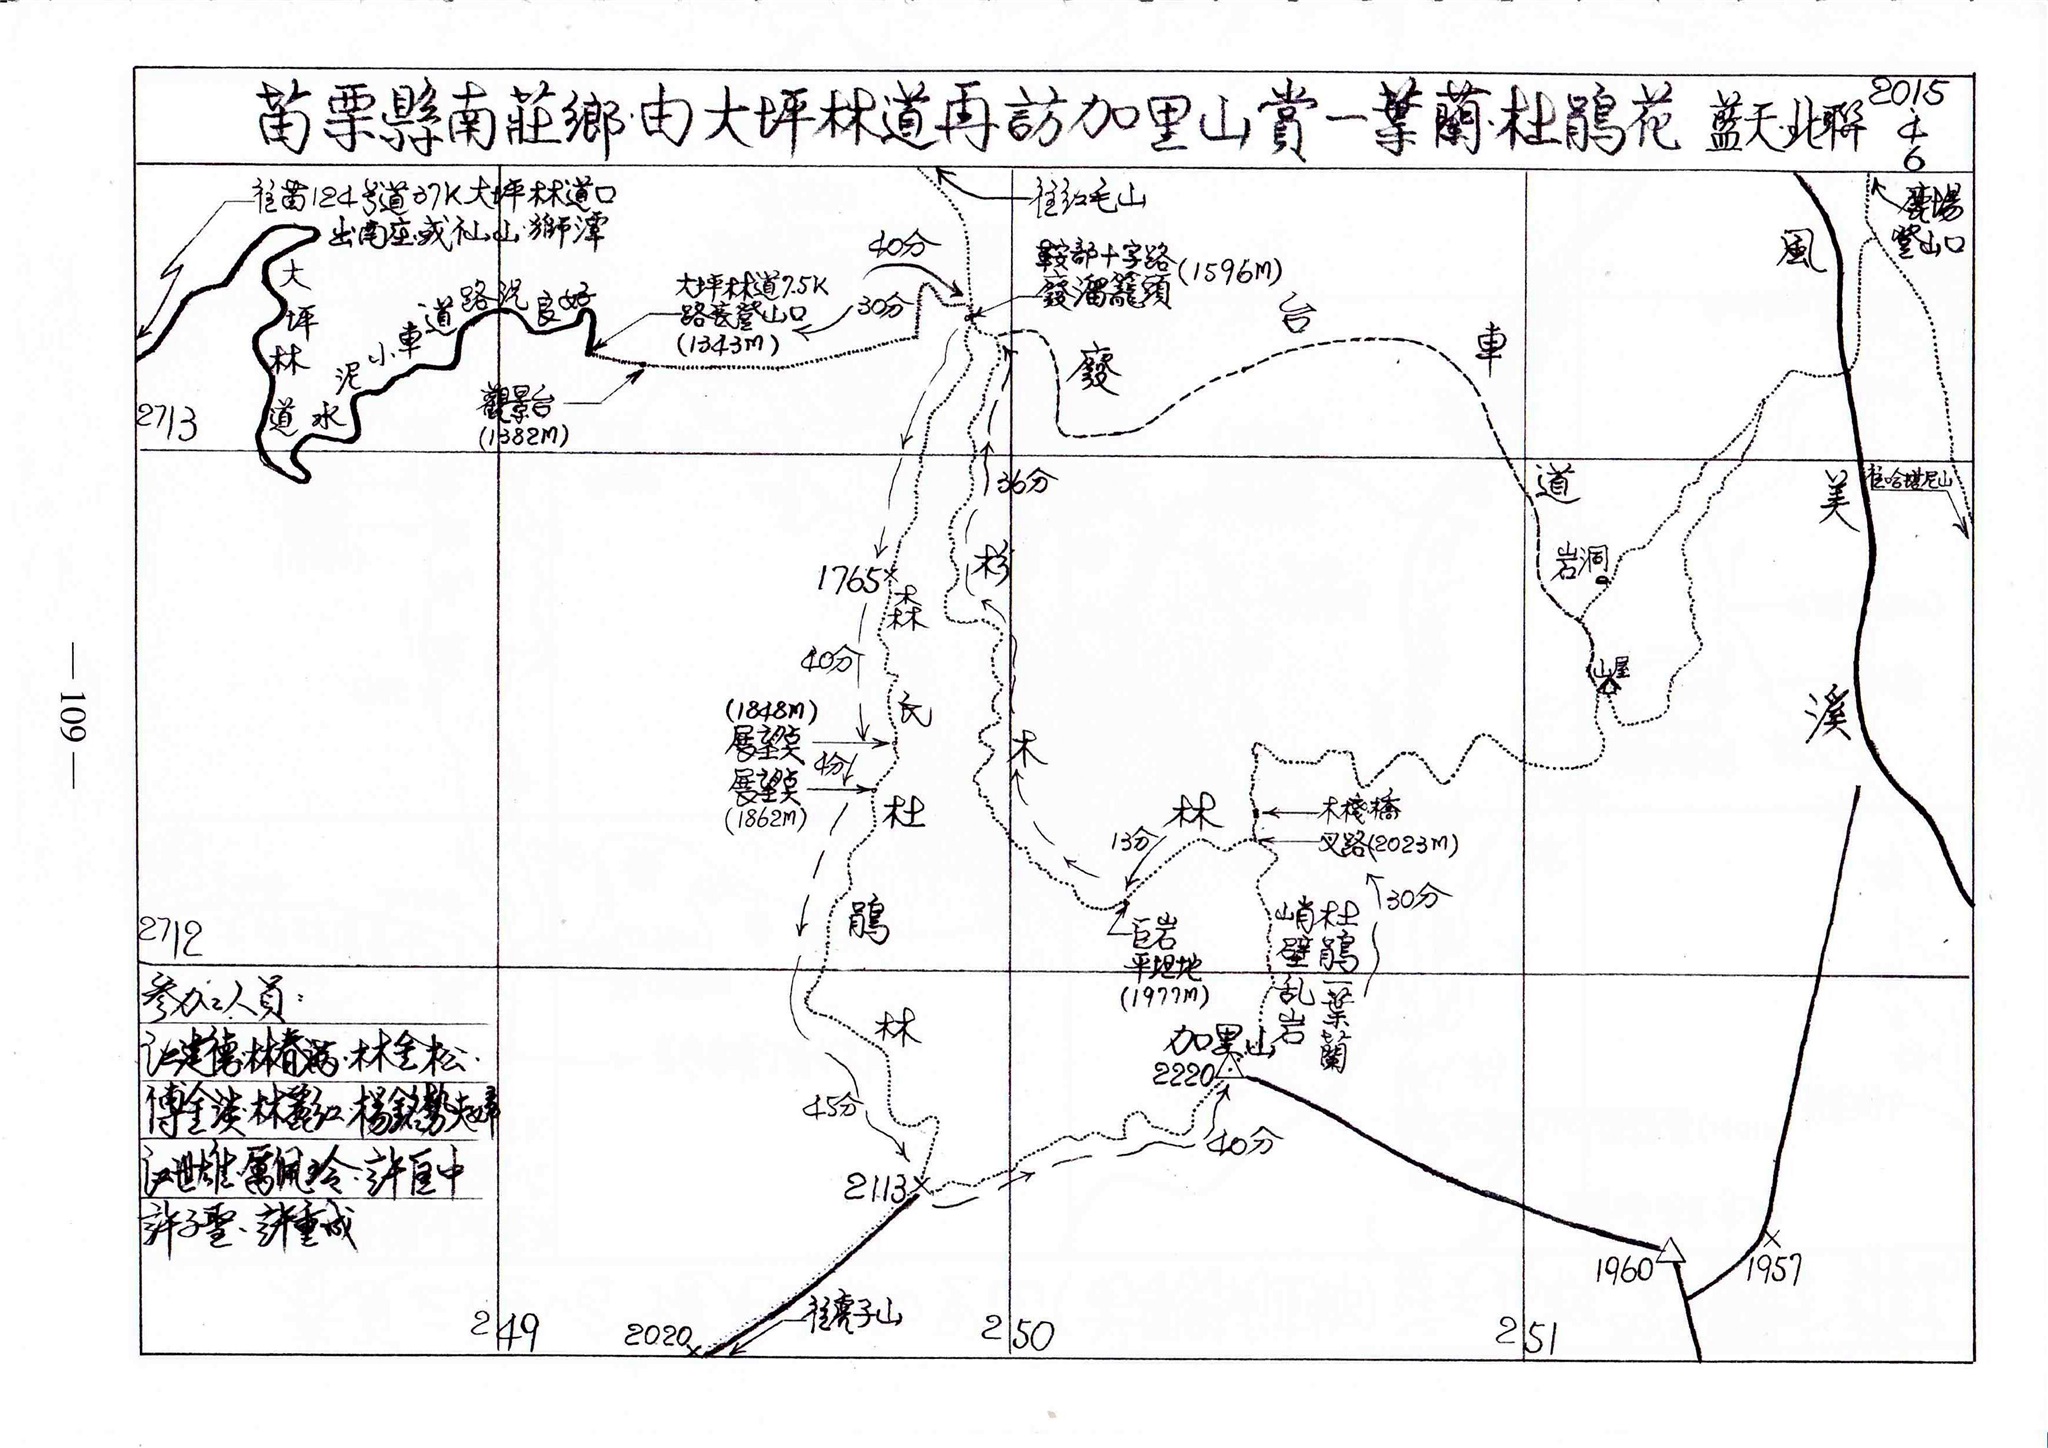 苗栗縣南莊鄉·由大坪林道再訪加里山賞一葉蘭·杜鵑花 藍天北聯 2015·4·6
往苗124号道37K大坪林道口
出南庄或仙山·獅潭
往紅毛山
鹿場
登山口
40分
鞍部十字路
廢溜籠頭
(1596M)
風美溪
大坪林道7.5K
路底登山口
(1343M)
30分
大坪林道
水泥小車道路況良好
廢台車道
觀景台
(1382M)
2713
36分
往哈堪尼山
岩洞
1765
森氏杜鵑林
杉木林
40分
山屋
(1848M)
展望點
4分
展望點
(1862M)
木棧橋
叉路(2023M)
13分
30分
巨岩
平坦地
(1977M)
峭壁乱岩
杜鵑一葉蘭
2712
參加人員:
江建德·林春·林金松·
傅金·林麗紅·楊銘勢夫婦
江世雄·佩玲·許臣中
許子聖·許重成
加里山
2220
45分
40分
2113
1960
1957
往虎子山
2020
249
250
251
— 109 —